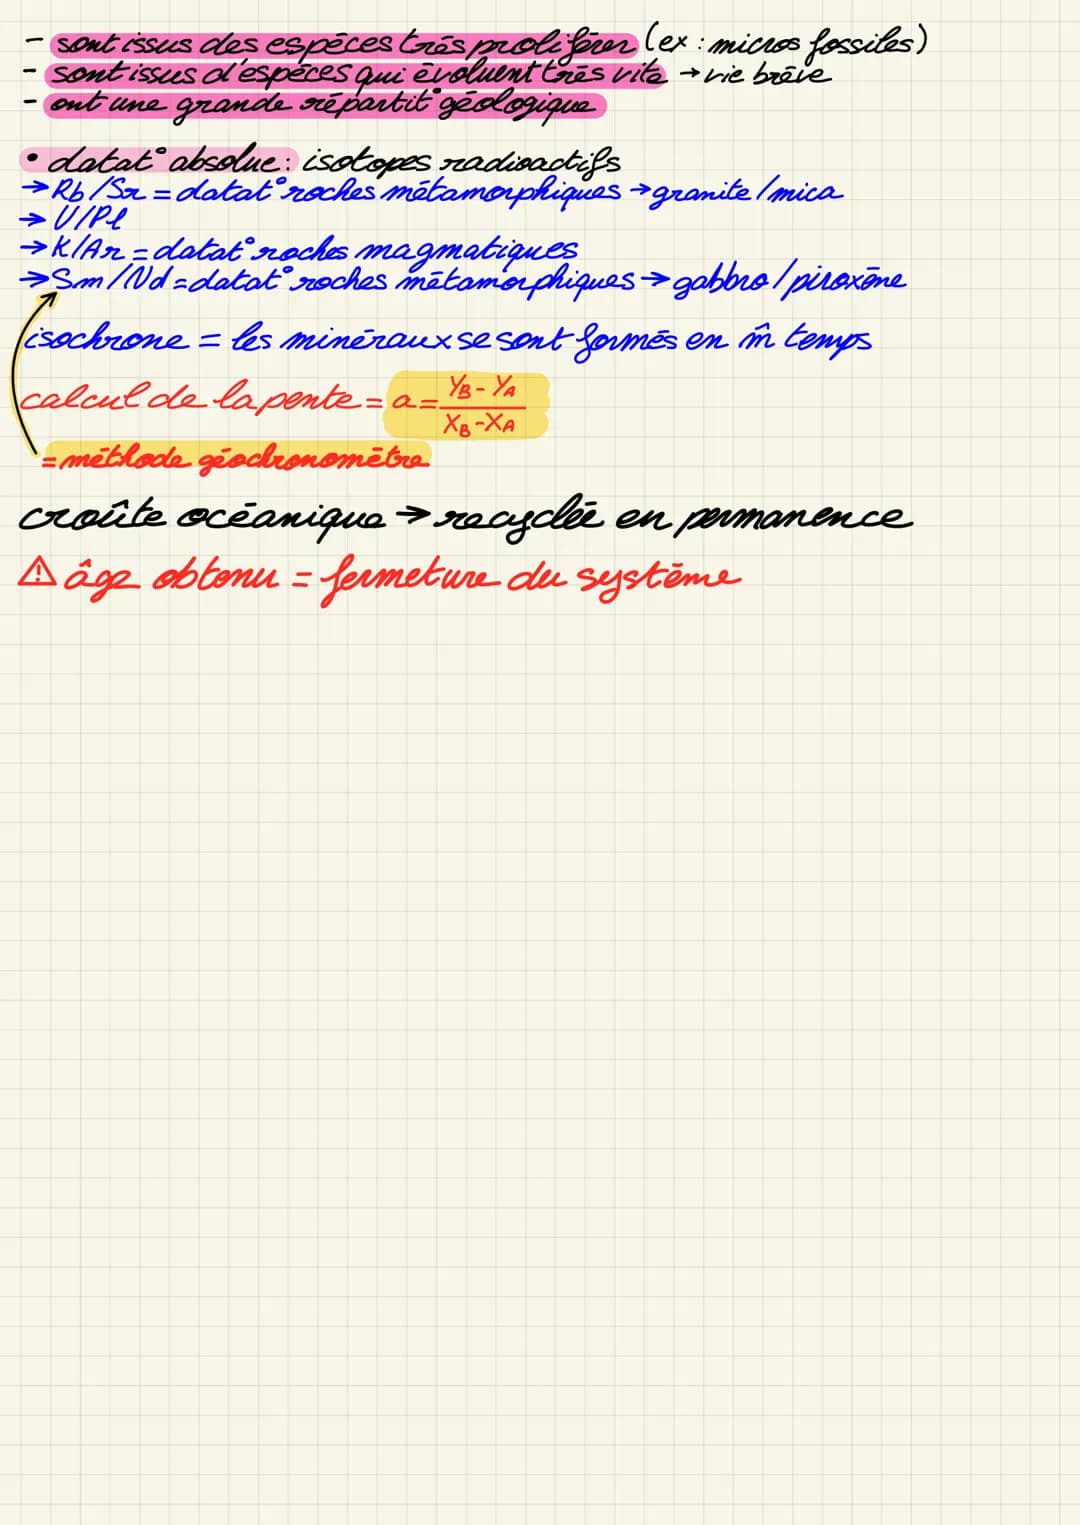 - sont issus des espèces très proliférer (ex : micros fossiles)
- sont issus d'espèces qui évoluent très vite → vie brève
- ont une grande répartit° géologique
• datat° absolue : isotopes radioactifs
→ Rb/Sr = datat° roches métamorphiques → granite/mica
→ U/Pl
→ K/Ar = datat° roches magmatiques
→ Sm/Nd = datat° roches métamorphiques → gabbro/piroxène
isochrone = les minéraux se sont formés en m̂ temps
calcul de la pente = a = (YB - YA) / (XB - XA)
= méthode géochronomètre
croûte océanique → recyclée en permanence
⚠ âge obtenu = fermeture du système